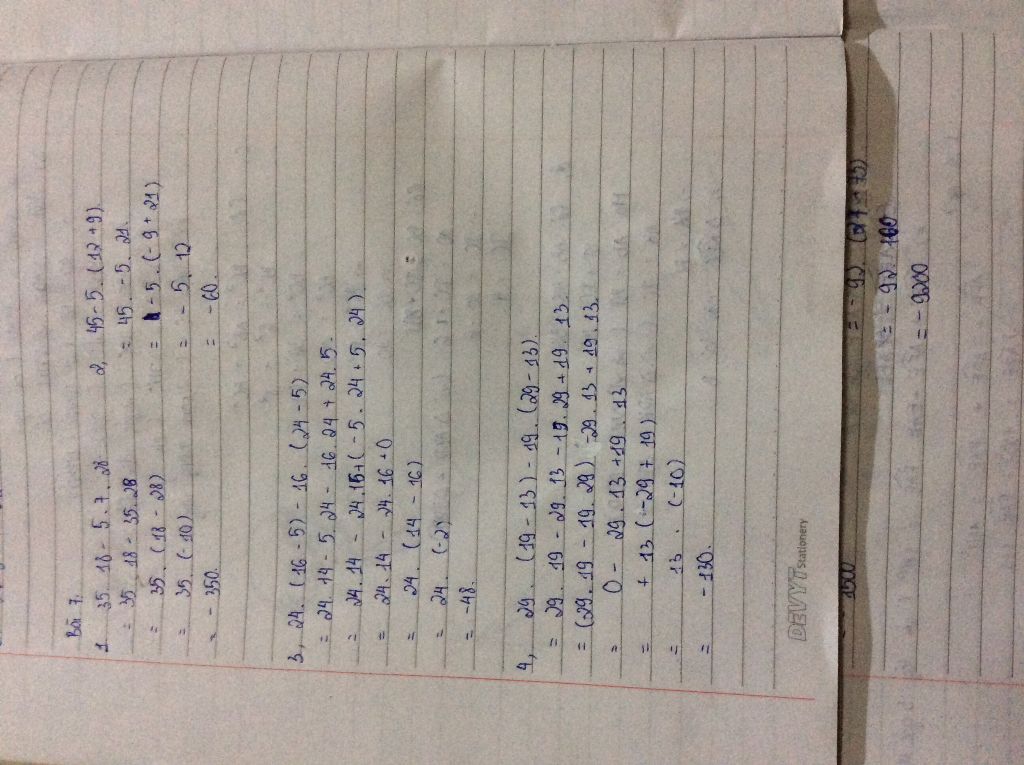 Bài 7.
1. 35. 18 - 5. 7. 28
= 35. 18 - 35. 28
= 35. (18 - 28)
= 35 (-10)
= - 350.
2, 45 - 5. (12 + 9)
= 45. - 5. 21.
= - 5. (- 9 + 21)
= - 5. 12
= - 60.
3, 24. (16 - 5) - 16. (24 - 5)
= 24. 14 - 5. 24 - 16. 24 + 24. 5.
= 24. 14 - 24. 15 + (- 5. 24 + 5. 24)
= 24. 14 - 24. 16 + 0
= 24. (14 - 16)
= 24. (-2)
= - 48.
4, 29. (19 - 13) - 19. (29 - 13).
= 29. 19 - 29. 13 - 19. 29 + 19. 13.
= (29. 19 - 19. 29) - 29. 13 + 19. 13.
= 0 - 29. 13 + 19. 13
= + 13 (-29 + 19)
= 13. (-10)
= - 130.
DEVYT Stationery
1500
= - 92.
= - 92. 100
= - 9200